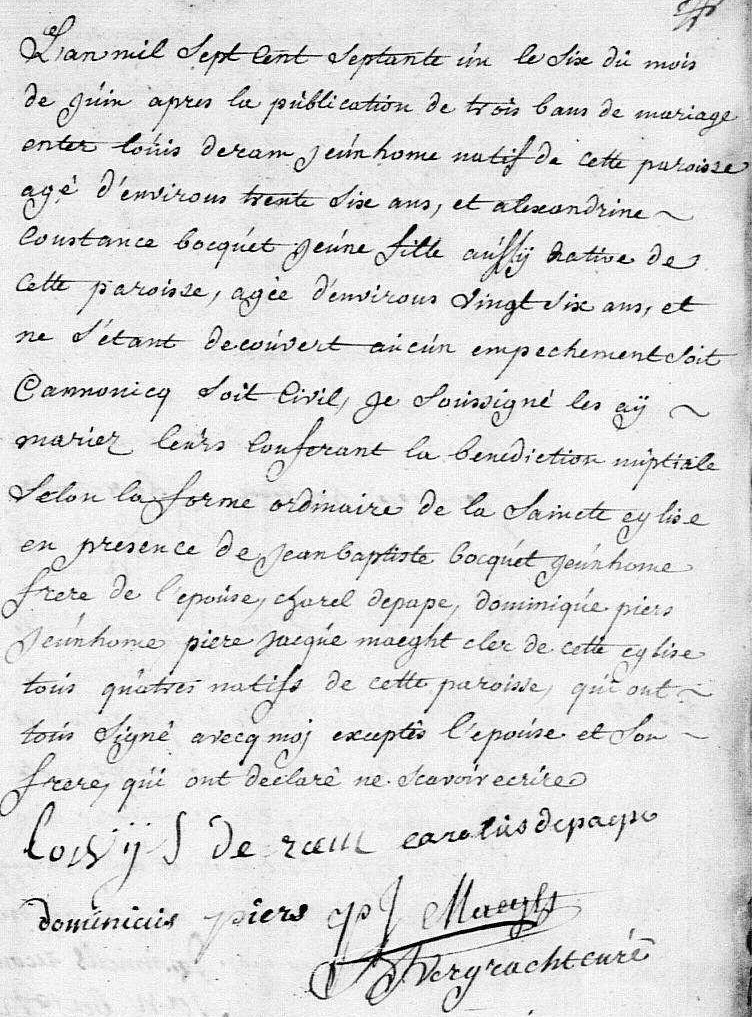 L'an mil Sept Cent Septante ún le Six dú mois
de júin apres la públication de trois bans de mariage
enter loúis deram jeúnhome natif de cette paroisse
agé d'environs trente Six ans, et alexandrine ~
Constance bocqúet jeúne fille aússÿ native de
Cette paroisse, agée d'environs Vingt Six ans, et
ne S'étant decoúvert aúcún empechement Soit
Cannonicq Soit Civil, je Soússigné les aÿ ~
mariez leúrs Conferant la benediction núptiale
Selon la forme ordinaire de la Saincte eglise
en presence de jeanbaptiste bocqúet jeúnhome
frere de l'epoúse, charel depape, dominiqúe piers
jeúnhome piere jacqúe maeght cler de cette eglise
toús qúatres natifs de cette paroisse, qúi ont ~
toús Signé avecq moj exceptés l'epoúse et Son ~
frere, qúi ont declaré ne Scavoir ecrire
lowijs de carolús depape
dominicús piers pj Maeght
Vergracht curé